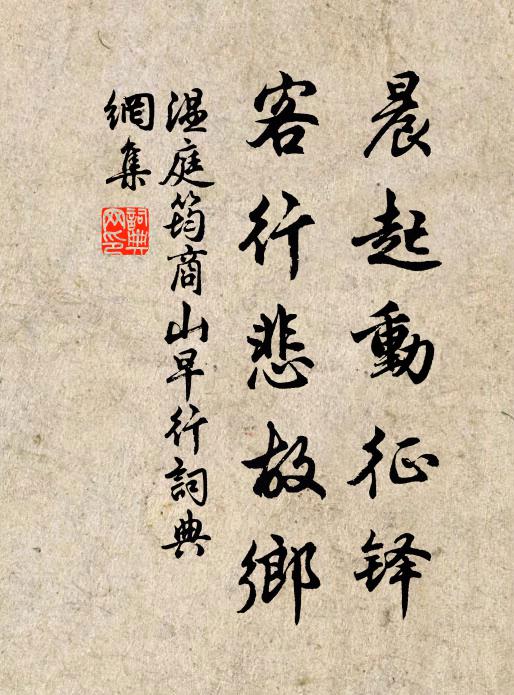 晨起動征铎
客行悲故鄉
温庭筠商山早行詞典
網集
詞典
网印